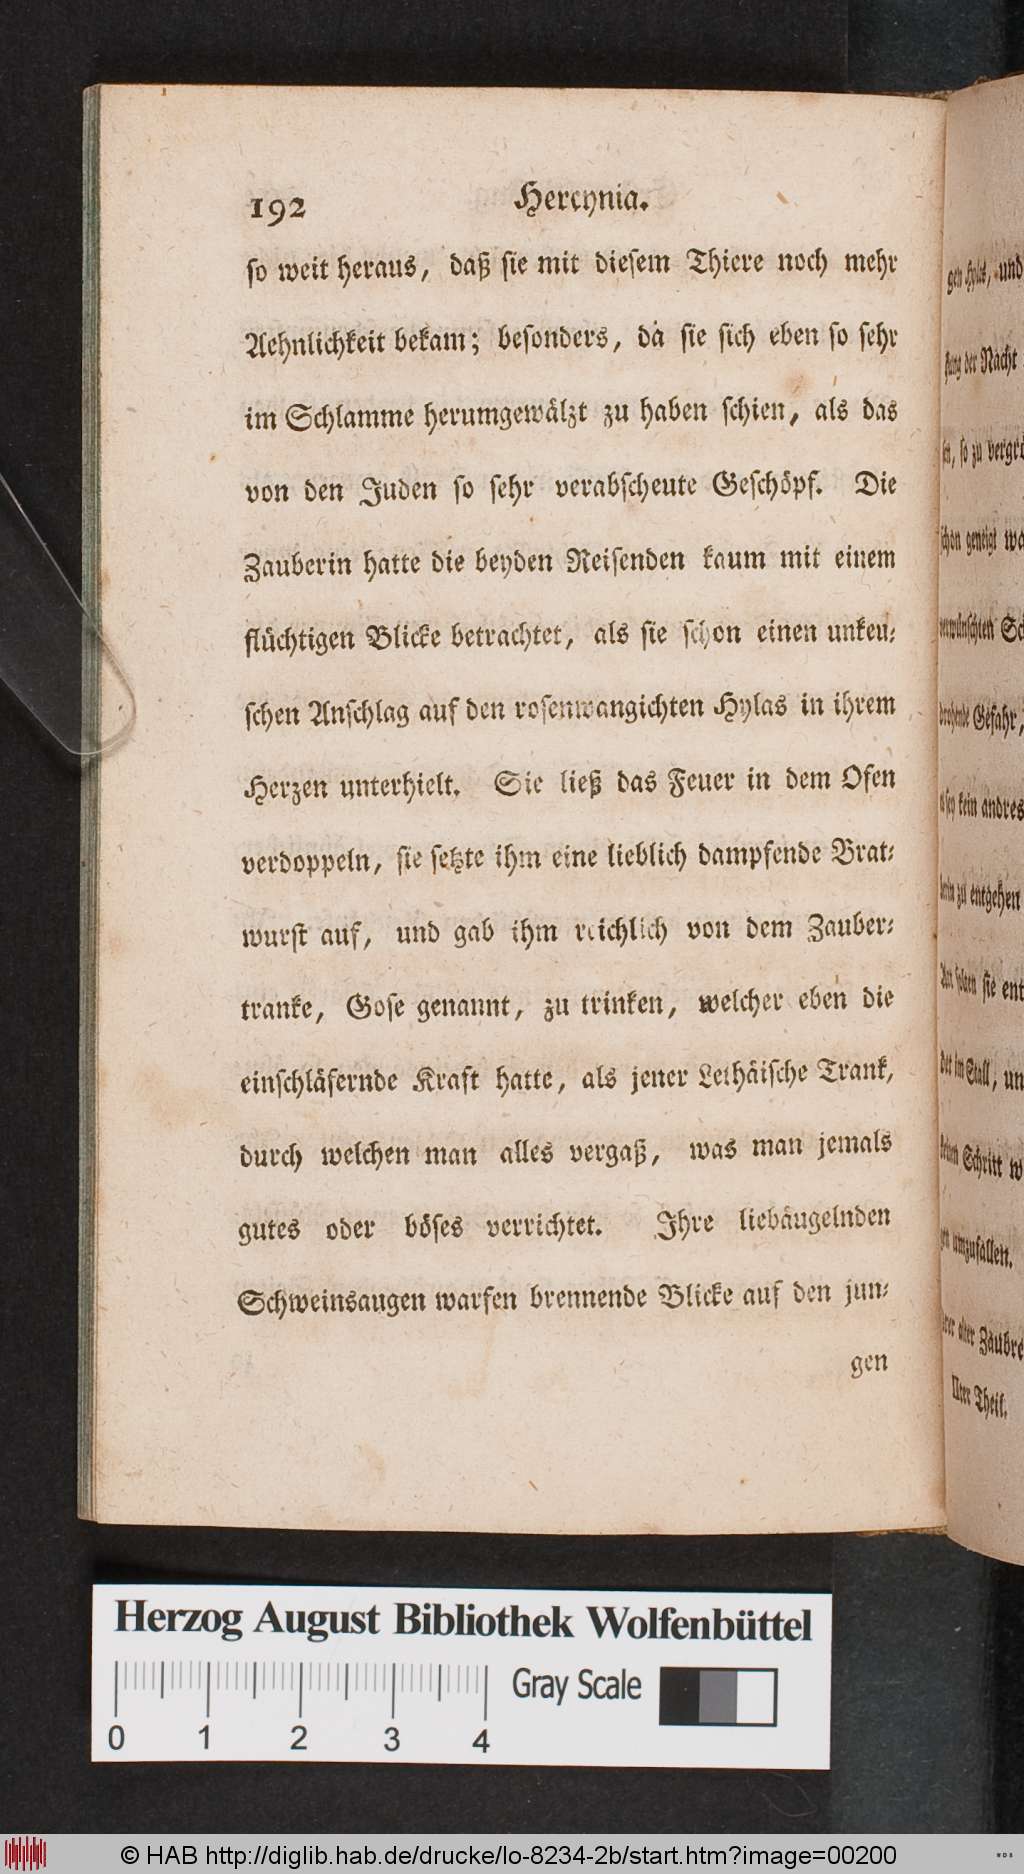 192 Hercynia.
so weit heraus, daß sie mit diesem Thiere noch mehr
Aehnlichkeit bekam; besonders, da sie sich eben so sehr
im Schlamme herumgewälzt zu haben schien, als das
von den Juden so sehr verabscheute Geschöpf. Die
Zauberin hatte die beyden Reisenden kaum mit einem
flüchtigen Blicke betrachtet, als sie schon einen unkeu-
schen Anschlag auf den rosenwangichten Hylas in ihrem
Herzen unterhielt. Sie ließ das Feuer in dem Ofen
verdoppeln, sie setzte ihm eine lieblich dampfende Brat-
wurst auf, und gab ihm reichlich von dem Zauber-
tranke, Gose genannt, zu trinken, welcher eben die
einschläfernde Kraft hatte, als jener Lethäische Trank,
durch welchen man alles vergaß, was man jemals
gutes oder böses verrichtet. Ihre liebäugelnden
Schweinsaugen warfen brennende Blicke auf den jun-
gen
gen Hylas, und
der Nacht
so zu vergrö
schon geneigt wa
wünschten Sc
drohende Gefahr,
sey kein andres
zu entgehen
sie ent
der im Stall, un
Schritt w
umzufallen.
alter Zaubre
IIter Theil.
Herzog August Bibliothek Wolfenbüttel
Gray Scale
0 1 2 3 4
© HAB http://diglib.hab.de/drucke/lo-8234-2b/start.htm?image=00200